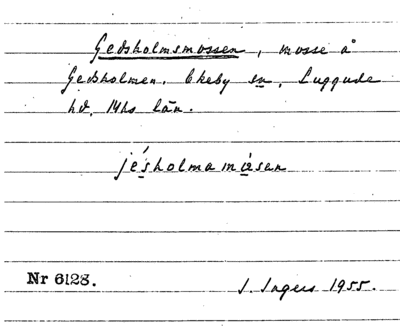 Gedsholmsmossen, mosse å
Gedsholmen. Ekeby sn, Luggude
hd, Mhs län.
jésholmamåsen
Nr 6128.
1955.